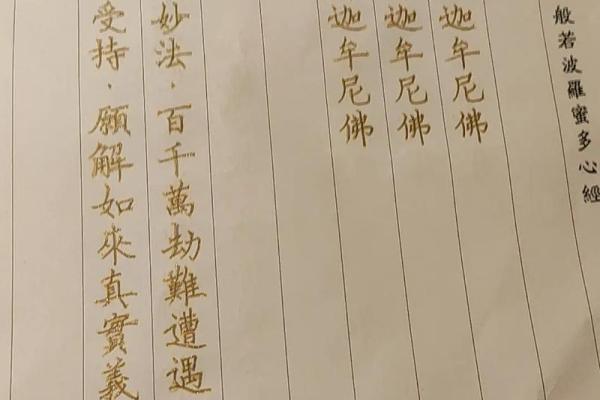 般若波羅蜜多心經
迦牟尼佛
迦牟尼佛
迦牟尼佛
妙法，百千萬劫難遭遇
受持，願解如來真實義